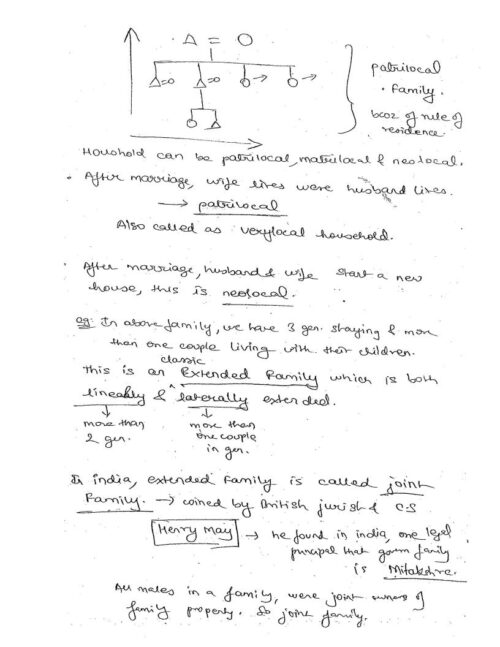 Δ = O
Δ=O Δ=O O→ O→
O Δ
patrilocal
family.
bcoz of rule of
residence.
Houshold can be patrilocal, matrilocal & neolocal.
• After marriage, wife lives were husband lives.
→ patrilocal
Also called as verylocal household.
• After marriage, husband & wife start a new
house, this is neolocal.
eg: In above family, we have 3 gen. staying & more
than one couple living with their children.
classic
This is an ^ Extended Family which is both
lineably & laterally extended.
↓ ↓
more than more than
2 gen. one couple
in gen.
In india, extended family is called joint
Family. → coined by British jurist & C.S
Henry May → he found in india, one legal
principal that govern family
is Mitakshre.
All males in a family, were joint owners of
family property. So joint family.